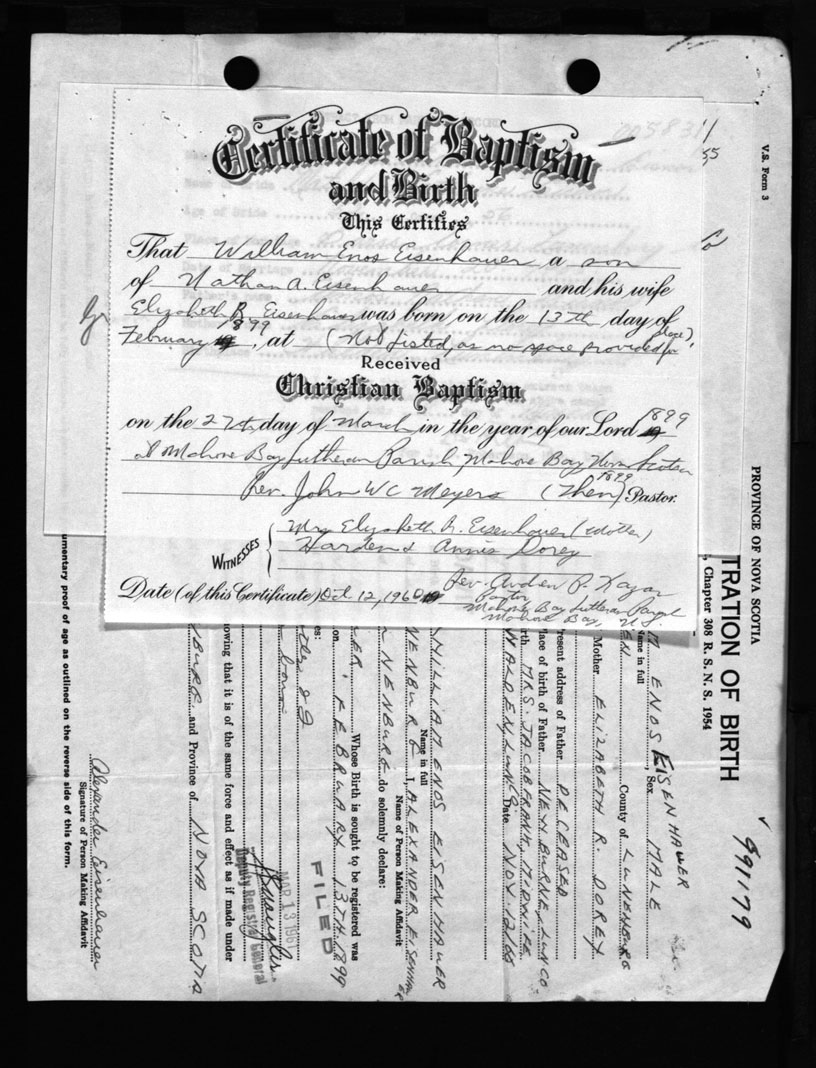 Certificate of Baptism
and Birth
This Certifies
That William Enos Eisenhauer a son
of Nathan A. Eisenhauer and his wife
Elizabeth R. Eisenhauer was born on the 13th day of
February 1899, at (Not listed, as no space provided for place),
Received
Christian Baptism
on the 27th day of March in the year of our Lord 1899
at Mahone Bay Lutheran Parish, Mahone Bay, Nova Scotia
Rev. John W C Meyers (Then 1899) Pastor.
WITNESSES
Mrs Elizabeth R. Eisenhauer (Mother)
Harden & Annis Dorey
Date (of this Certificate) Oct. 12, 1960
Pastor
Mahone Bay Lutheran Parish
Mahone Bay, N.S.
V.S. Form 3
PROVINCE OF NOVA SCOTIA
TRATION OF BIRTH
, Chapter 308 R. S. N. S. 1954
991179
M ENOS EISENHAUER
Name in full
Sex MALE
EN County of LUNENBURG
Mother ELIZABETH R. DOREY
Present address of Father DECEASED
Place of birth of Father NEW BURNE, LUN CO
rth MRS. JACOB FRANK, MIDWIFE
WALDEN, LUN CO Date NOV. 12/60
WILLIAM ENOS EISENHAUER
Name in full
NENBURG I, ALEXANDER EISENHAUER
Name of Person Making Affidavit
NENBURG do solemnly declare:
Whose Birth is sought to be registered was
on FEBRUARY 13TH 1899
FILED
MAR 13 1961
Deputy Registrar General
nowing that it is of the same force and effect as if made under
NBURG and Province of NOVA SCOTIA
Alexander Eisenhauer
Signature of Person Making Affidavit
umentary proof of age as outlined on the reverse side of this form.